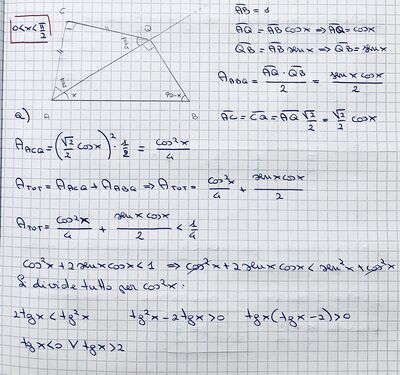 0<x<π/2
C
Q
π/4
x
π/2
90-x
A
B
AB = 1
AQ = AB cosx ⇒ AQ = cosx
QB = AB senx ⇒ QB = senx
A_ABQ = AQ · QB / 2 = senx cosx / 2
AC = CQ = AQ √2/2 = √2/2 cosx
a)
A_ACQ = (√2/2 cosx)² · 1/2 = cos²x/4
A_TOT = A_ACQ + A_ABQ ⇒ A_TOT = cos²x/4 + senx cosx/2
A_TOT = cos²x/4 + senx cosx/2 < 1/4
cos²x + 2senx cosx < 1 ⇒ cos²x + 2senx cosx < sen²x + cos²x
Si divide tutto per cos²x:
2tgx < tg²x tg²x - 2tgx > 0 tgx(tgx - 2) > 0
tgx < 0 ∨ tgx > 2